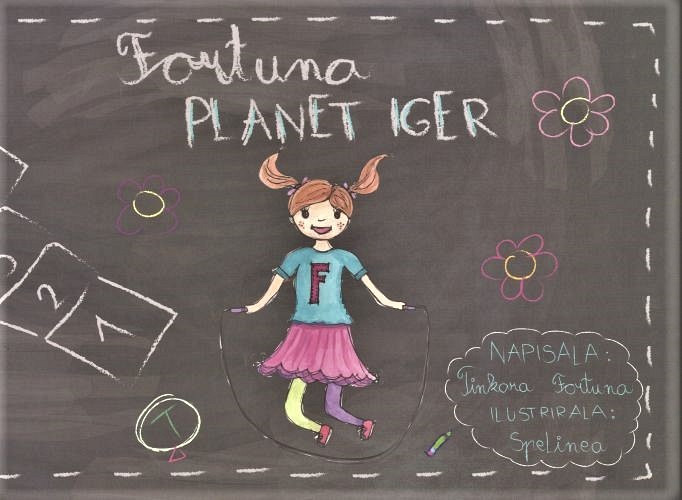 Fortuna
PLANET IGER
F
2
1
T
NAPISALA:
Tinkara Fortuna
ILUSTRIRALA:
SpeLinea